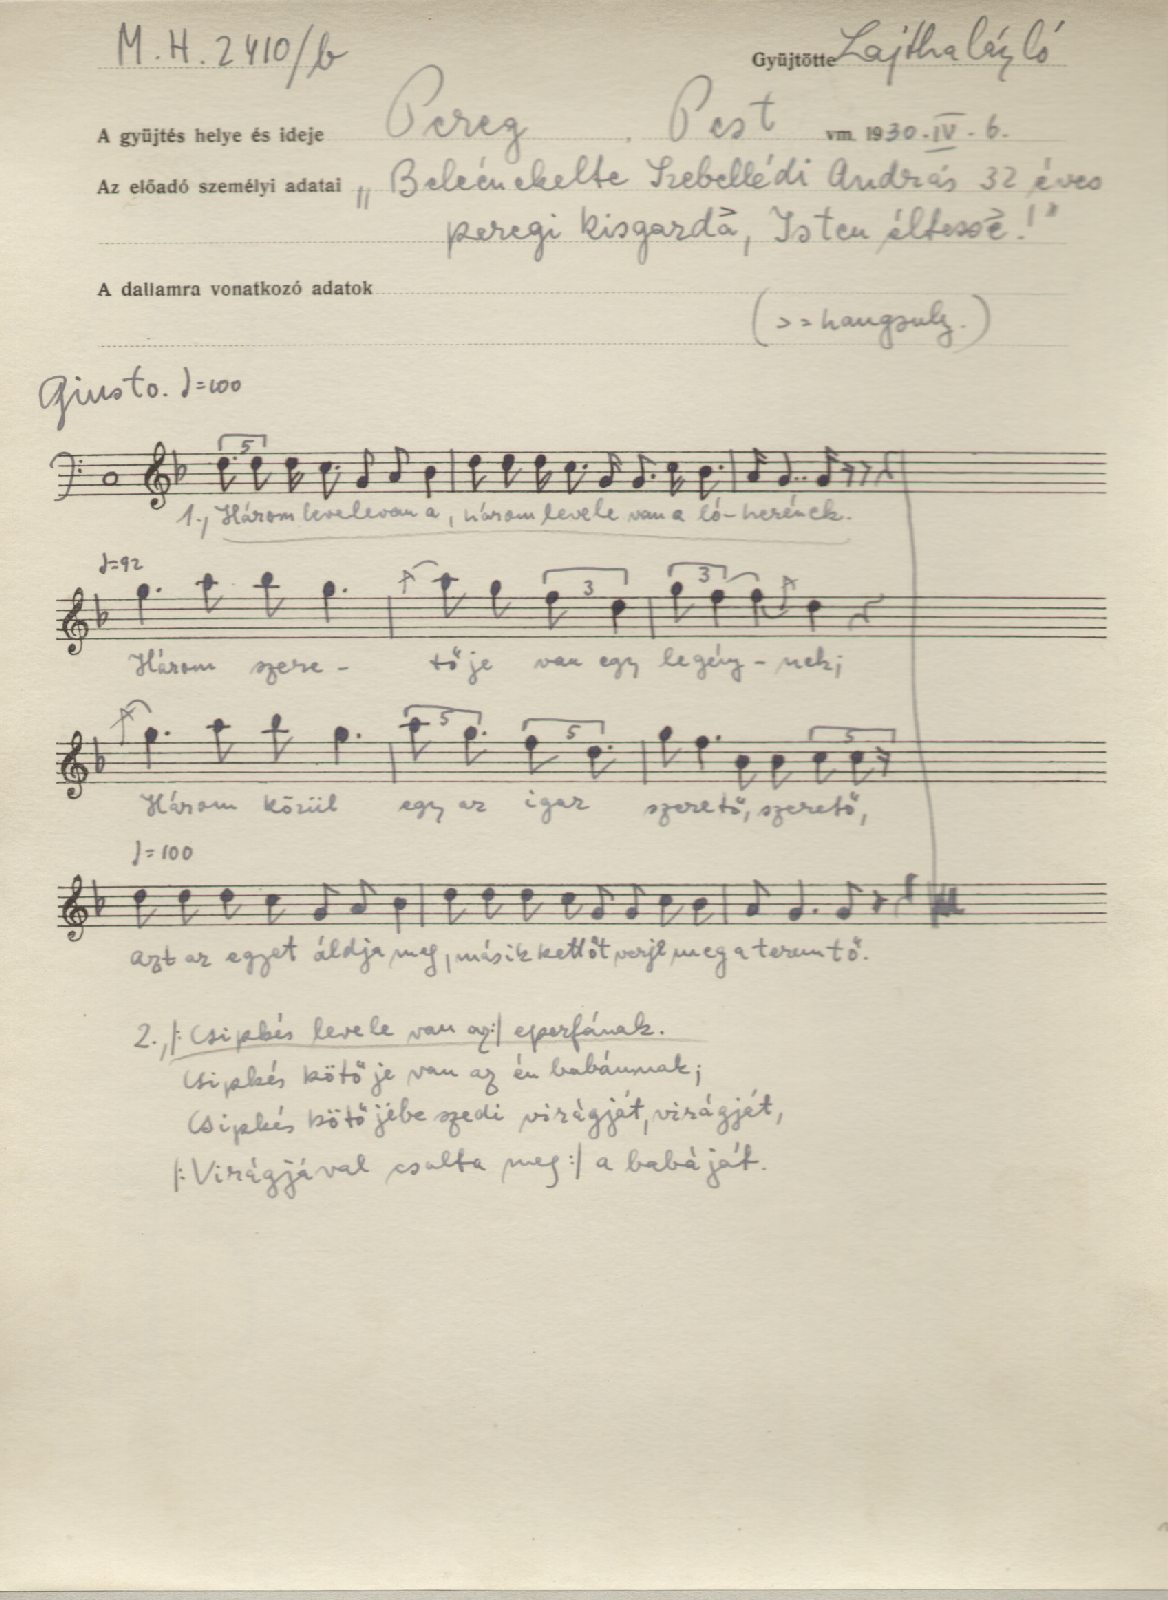 M.H. 2410/b
Gyüjtötte Lajtha László
A gyüjtés helye és ideje Pereg, Pest vm. 1930. IV. 6.
Az előadó személyi adatai „Beleénekelte Szebellédi András 32 éves
peregi kisgardă, Isten éltesse!"
A dallamra vonatkozó adatok
(> = hangsuly.)
Giusto. ♩=100
5
1., Három levele van a, három levele van a ló-herének.
♩=92
3 3
Három szere - tője van egy legény - nek;
5 5 5
Három közül egy az igaz szerető, szerető,
♩=100
azt az egyet áldja meg, másik kettőt verje meg a teremtő.
2., |: Csipkés levele van az :| eperfának.
Csipkés kötője van az én babámnak;
Csipkés kötőjébe szedi virágját, virágját,
|: Virágjával csalta meg :| a babáját.